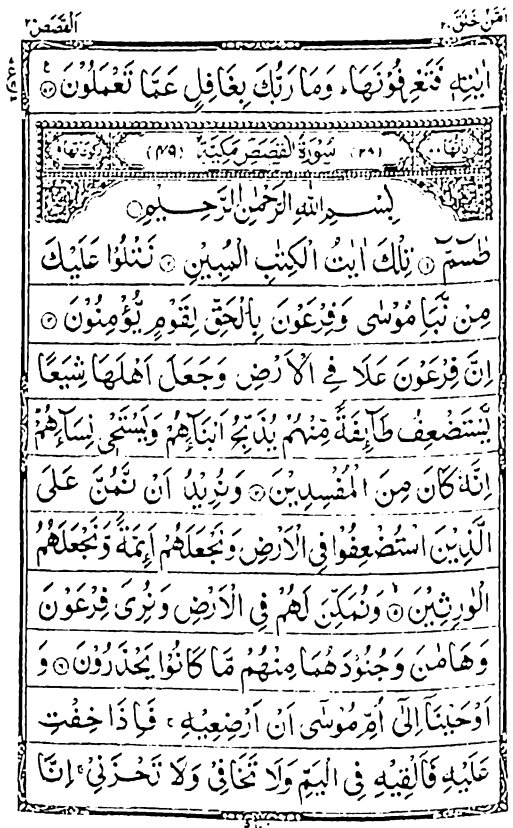 امن خلق ۲۰ القصص ۲۸
اٰیٰتِهٖ فَتَعْرِفُوْنَهَا ؕ وَمَا رَبُّكَ بِغَافِلٍ عَمَّا تَعْمَلُوْنَ ۝۹۳
سُوْرَةُ الْقَصَصِ مَكِّيَّةٌ (۴۹)
بِسْمِ اللّٰهِ الرَّحْمٰنِ الرَّحِيْمِ
طٰسٓمّٓ ۝۱ تِلْكَ اٰيٰتُ الْكِتٰبِ الْمُبِيْنِ ۝۲ نَتْلُوْا عَلَيْكَ
مِنْ نَّبَاِ مُوْسٰى وَفِرْعَوْنَ بِالْحَقِّ لِقَوْمٍ يُّؤْمِنُوْنَ ۝۳
اِنَّ فِرْعَوْنَ عَلَا فِي الْاَرْضِ وَجَعَلَ اَهْلَهَا شِيَعًا
يَّسْتَضْعِفُ طَآئِفَةً مِّنْهُمْ يُذَبِّحُ اَبْنَآءَهُمْ وَيَسْتَحْيٖ نِسَآءَهُمْ
اِنَّهٗ كَانَ مِنَ الْمُفْسِدِيْنَ ۝۴ وَنُرِيْدُ اَنْ نَّمُنَّ عَلَى
الَّذِيْنَ اسْتُضْعِفُوْا فِي الْاَرْضِ وَنَجْعَلَهُمْ اَئِمَّةً وَّنَجْعَلَهُمُ
الْوٰرِثِيْنَ ۝۵ وَنُمَكِّنَ لَهُمْ فِي الْاَرْضِ وَنُرِيَ فِرْعَوْنَ
وَهَامٰنَ وَجُنُوْدَهُمَا مِنْهُمْ مَّا كَانُوْا يَحْذَرُوْنَ ۝۶ وَ
اَوْحَيْنَآ اِلٰٓى اُمِّ مُوْسٰٓى اَنْ اَرْضِعِيْهِ ۚ فَاِذَا خِفْتِ
عَلَيْهِ فَاَلْقِيْهِ فِي الْيَمِّ وَلَا تَخَافِيْ وَلَا تَحْزَنِيْ ۚ اِنَّا